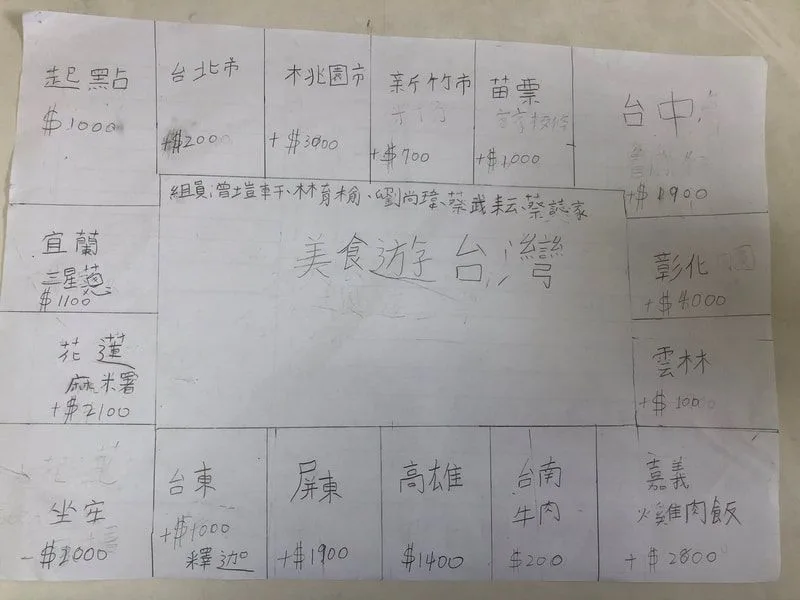 起點
$1000
台北市
+$200
桃園市
+$3000
新竹市
+$700
苗票
+$1,000
台中
+$1900
組員:曾塏軒、林育榆、劉尚瑋、蔡武耘、蔡誌家
美食遊台灣
宜蘭
三星蔥
$1100
彰化
+$4000
花蓮
麻米署
+$2100
雲林
+$100
坐牢
-$1000
台東
+$1000
釋迦
屏東
+$1900
高雄
$1400
台南
牛肉
$200
嘉義
火雞肉飯
+$2800